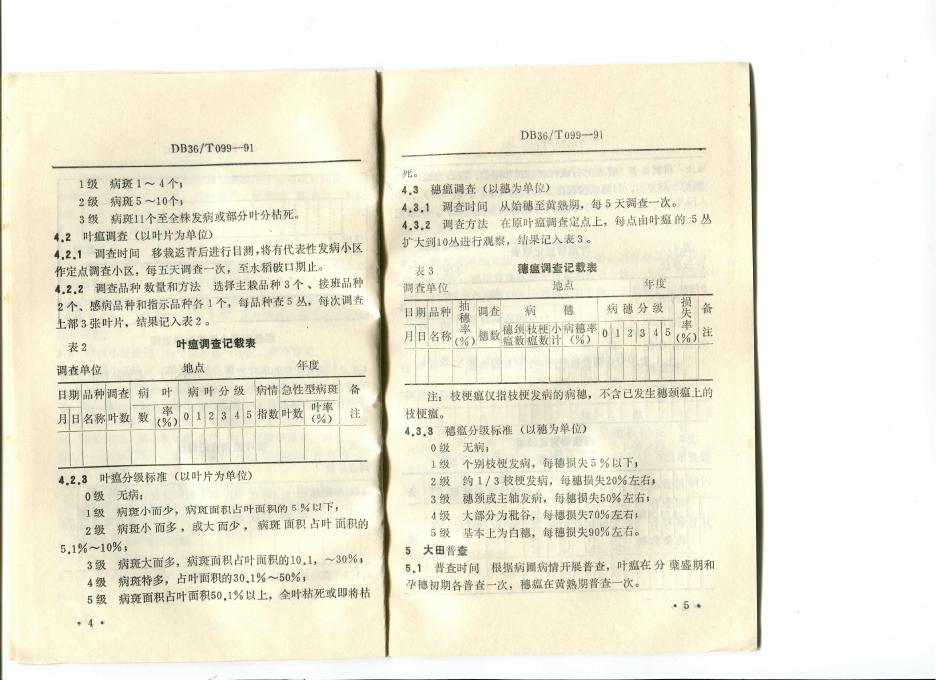 DB36/T099—91
1级 病斑1～4个；
2级 病斑5～10个；
3级 病斑11个至全株发病或部分叶分枯死。
4.2 叶瘟调查（以叶片为单位）
4.2.1 调查时间 移栽返青后进行目测，将有代表性发病小区
作定点调查小区，每五天调查一次，至水稻破口期止。
4.2.2 调查品种数量和方法 选择主栽品种3个、接班品种
2个、感病品种和指示品种各1个，每品种查5丛，每次调查
上部3张叶片，结果记入表2。
表2 叶瘟调查记载表
调查单位 地点 年度
日期 品种 调查 病叶 病叶分级 病情 急性型病斑 备
月 日 名称 叶数 数 率(%) 0 1 2 3 4 5 指数 叶数 叶率(%) 注
4.2.3 叶瘟分级标准（以叶片为单位）
0级 无病；
1级 病斑小而少，病斑面积占叶面积的5％以下；
2级 病斑小而多，或大而少，病斑面积占叶面积的
5.1%～10%；
3级 病斑大而多，病斑面积占叶面积的10.1，～30%；
4级 病斑特多，占叶面积的30.1%～50%；
5级 病斑面积占叶面积50.1%以上，全叶枯死或即将枯
·4·
DB36/T099—91
死。
4.3 穗瘟调查（以穗为单位）
4.3.1 调查时间 从始穗至黄熟期，每5天调查一次。
4.3.2 调查方法 在原叶瘟调查定点上，每点由叶瘟的5丛
扩大到10丛进行观察，结果记入表3。
表3 穗瘟调查记载表
调查单位 地点 年度
日期 品种 抽穗率(%) 调查 病穗 病穗分级 损失率(%) 备
月 日 名称 穗数 穗颈瘟数 枝梗瘟数 小计 病穗率(%) 0 1 2 3 4 5 注
注：枝梗瘟仅指枝梗发病的病穗，不含已发生穗颈瘟上的
枝梗瘟。
4.3.3 穗瘟分级标准（以穗为单位）
0级 无病；
1级 个别枝梗发病，每穗损失5％以下；
2级 约1/3枝梗发病，每穗损失20%左右；
3级 穗颈或主轴发病，每穗损失50%左右；
4级 大部分为秕谷，每穗损失70%左右；
5级 基本上为白穗，每穗损失90%左右。
5 大田普查
5.1 普查时间 根据病圃病情开展普查，叶瘟在分蘖盛期和
孕穗初期各普查一次，穗瘟在黄熟期普查一次。
·5·